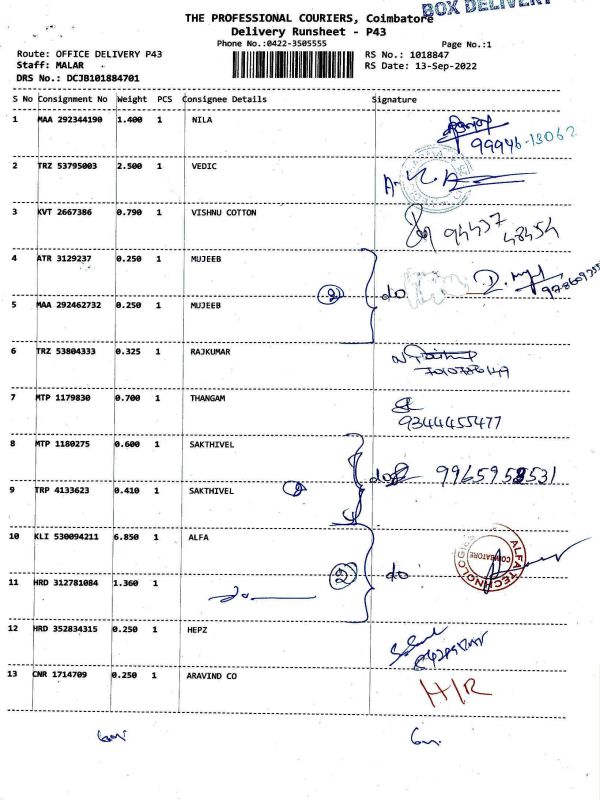 BOX DELIVERY
THE PROFESSIONAL COURIERS, Coimbatore
Delivery Runsheet - P43
Phone No.:0422-3505555
Page No.:1
Route: OFFICE DELIVERY P43
RS No.: 1018847
Staff: MALAR
RS Date: 13-Sep-2022
DRS No.: DCJB101884701
S No Consignment No Weight PCS Consignee Details Signature
1 MAA 292344190 1.400 1 NILA
99946-13062
2 TRZ 53795003 2.500 1 VEDIC
3 KVT 2667386 0.790 1 VISHNU COTTON
94437
48454
4 ATR 3129237 0.250 1 MUJEEB
2 do
5 MAA 292462732 0.250 1 MUJEEB
6 TRZ 53804333 0.325 1 RAJKUMAR
7 MTP 1179830 0.700 1 THANGAM
9344455477
8 MTP 1180275 0.600 1 SAKTHIVEL
do
9 TRP 4133623 0.410 1 SAKTHIVEL 2
10 KLI 530094211 6.850 1 ALFA
ALFA TECHNOLOGIES
COIMBATORE
2 do
11 HRD 312781084 1.360 1 do
12 HRD 352834315 0.250 1 HEPZ
13 CNR 1714709 0.250 1 ARAVIND CO
H/R